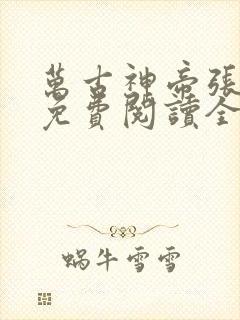 萬古神帝張
免費閱讀全
蝸牛雪雪